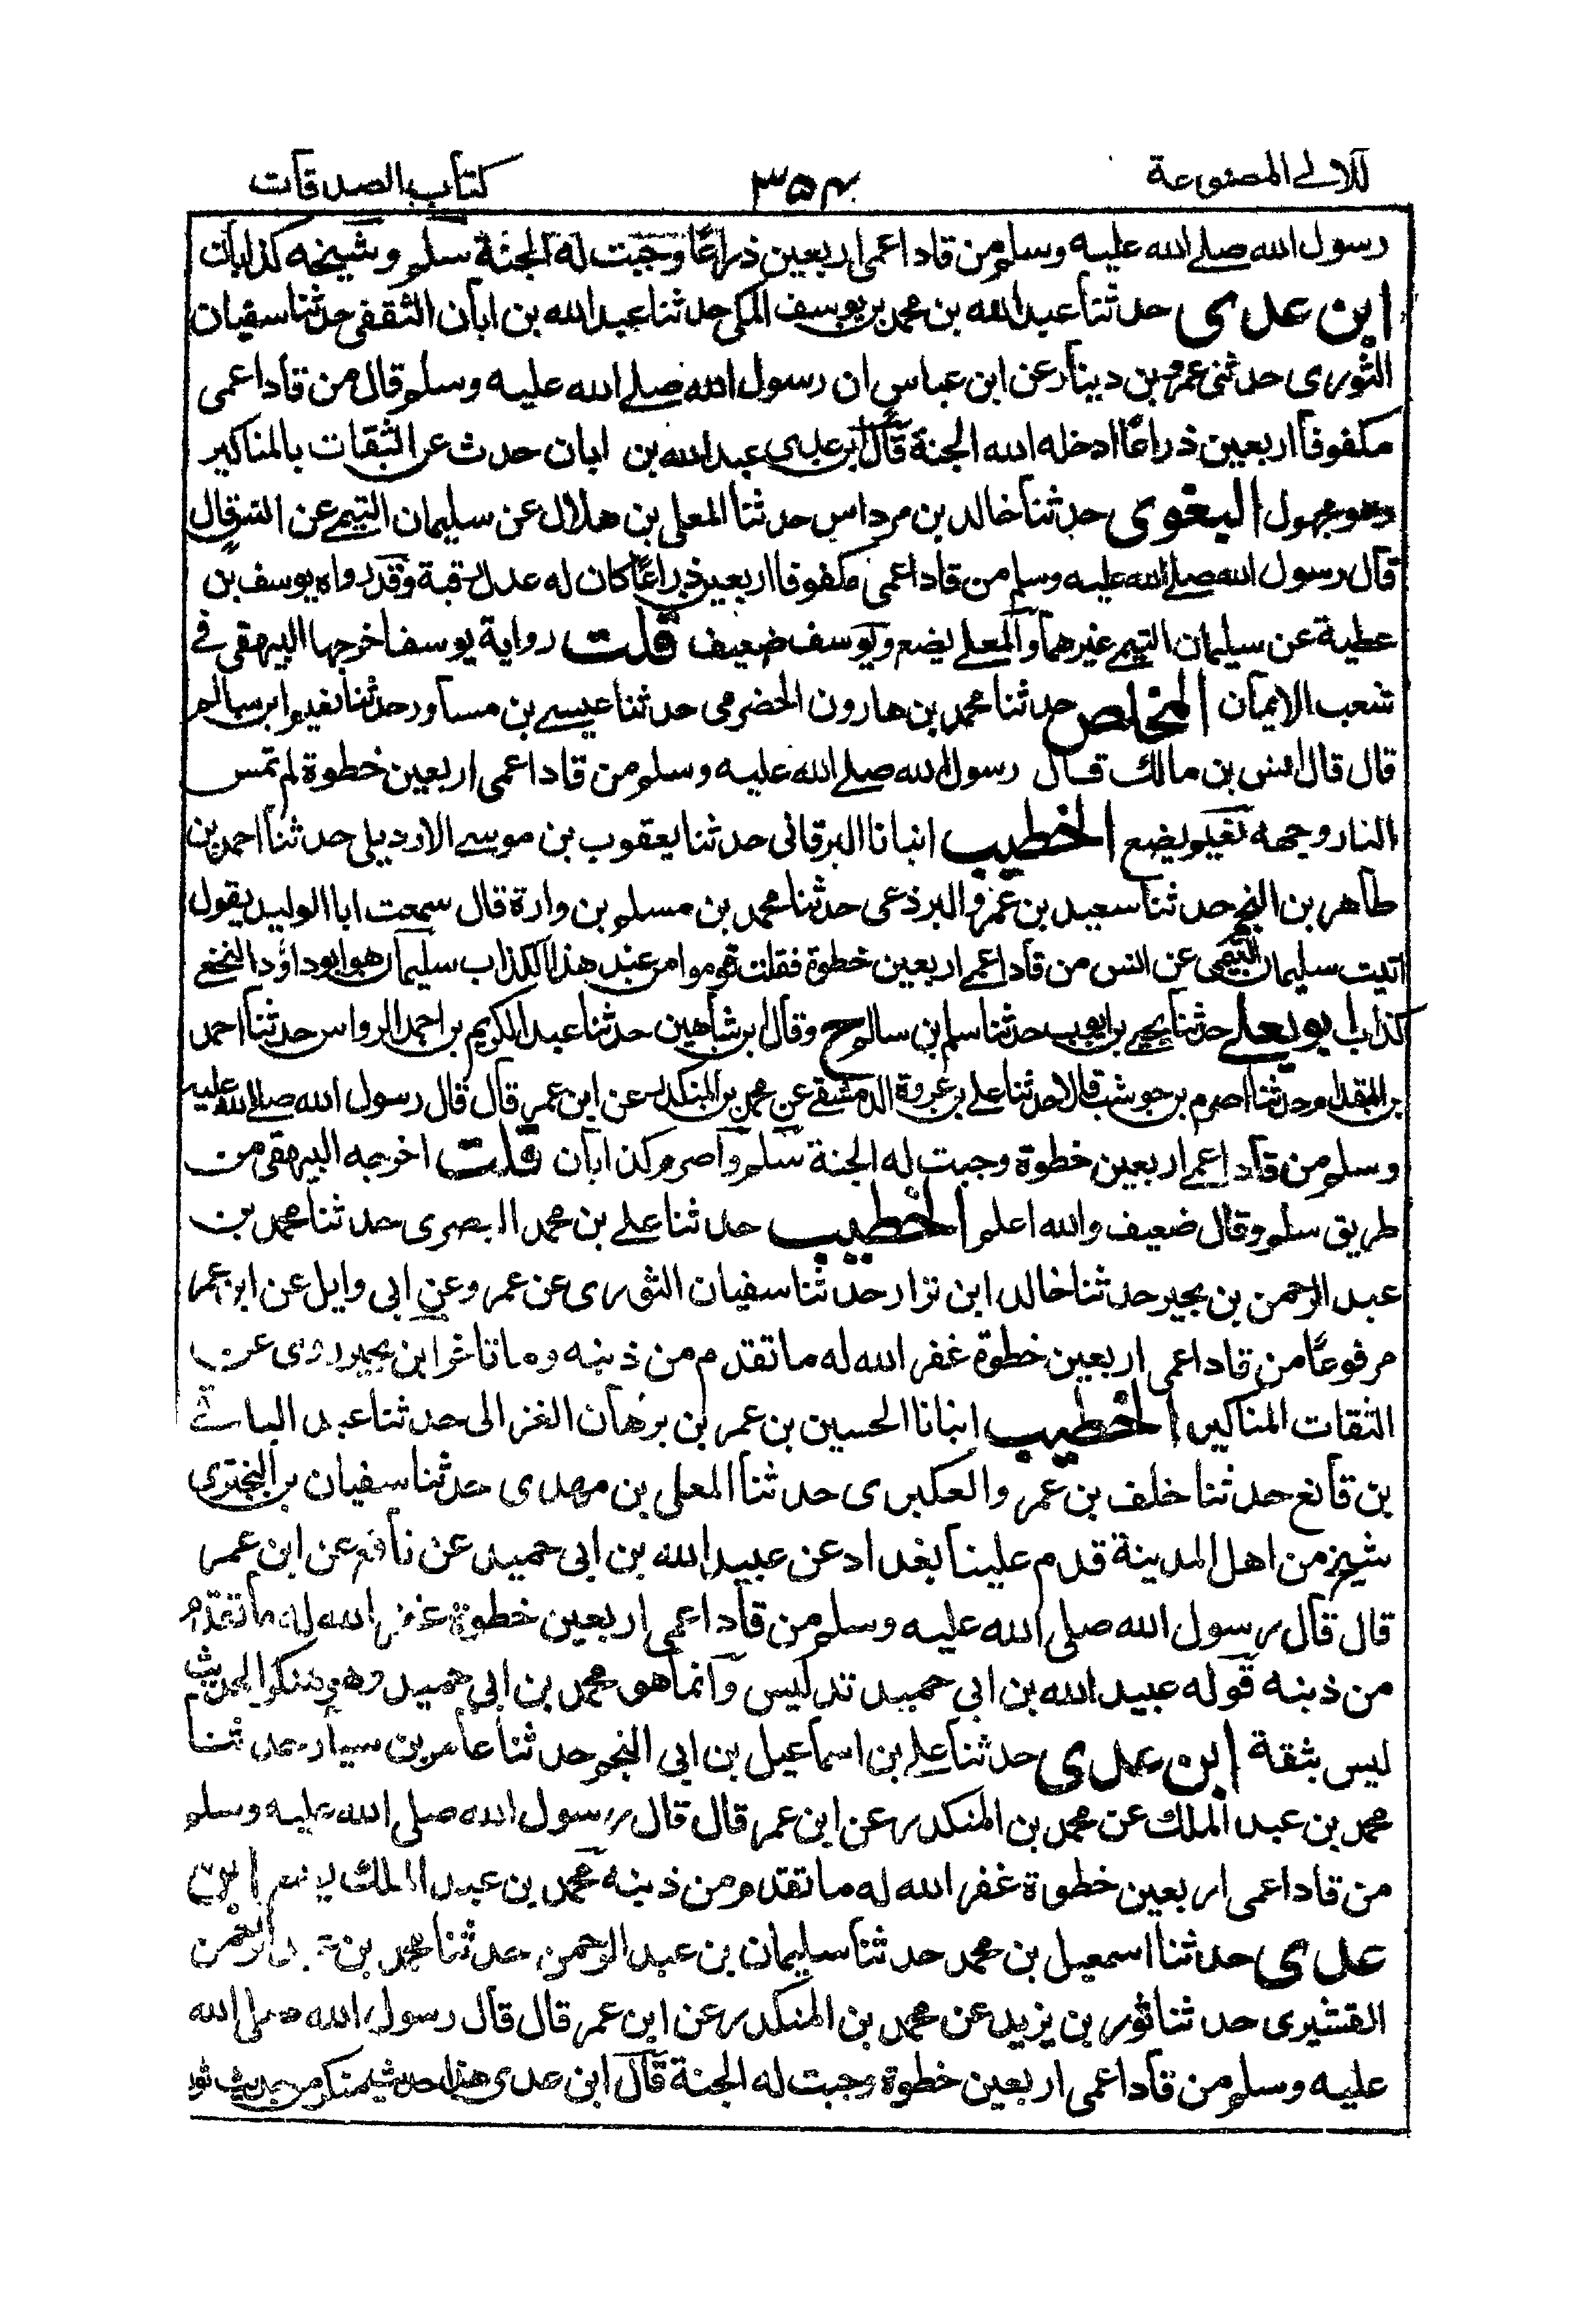 للآلے المصنوعة
۳۵۴
كتاب الصدقات
رسول الله صلے الله عليه وسلم من قاد اعمى اربعين ذراعًا وجبت له الجنة سلم وشيخه كذابان
ابن عدى حدثنا عبد الله بن محمد بن يوسف المكى حدثنا عبد الله بن ابان الثقفى حدثنا سفيان
الثورى حدثنى عمرو بن دينار عن ابن عباس ان رسول الله صلے الله عليه وسلم قال من قاد اعمى
مكفوفا اربعين ذراعًا ادخله الله الجنة قال ابن عدى عبد الله بن ابان حدث عن الثقات بالمناكير
وهو مجهول البغوى حدثنا خالد بن مرداس حدثنا المعلى بن هلال عن سليمان التيمے عن انس قال
قال رسول الله صلے الله عليه وسلم من قاد اعمى مكفوفا اربعين ذراعًا كان له عدل رقبة وقد رواه يوسف بن
عطية عن سليمان التيمے غيرهما والمعلے يضع ويوسف ضعيف قلت رواية يوسف اخرجها البيهقى فے
شعب الايمان المخلص حدثنا محمد بن هارون الحضرمى حدثنا عيسے بن مساور حدثنا نغيم بن سالم
قال قال انس بن مالك قال رسول الله صلے الله عليه وسلم من قاد اعمى اربعين خطوة لم تمس
النار وجهه نغيم يضع الخطيب انبانا البرقانى حدثنا يعقوب بن موسے الاردبيلى حدثنا احمد بن
طاهر بن النجم حدثنا سعيد بن عمرو البرذعى حدثنا محمد بن مسلم بن وارة قال سمعت ابا الوليد يقول
اتيت سليمان التيمى عن انس من قاد اعمے اربعين خطوة فقلت قوموا من عند هذا الكذاب سليمان هو ابو داؤد النخعے
كذاب ابو يعلے حدثنا يحيے بن ايوب حدثنا سلم بن سالم ح وقال ابن شاهين حدثنا عبد الكريم بن احمد الرواس حدثنا احمد
بن المقدام حدثنا اصرم بن حوشب قالا حدثنا على بن عروة الدمشقے عن محمد بن المنكدر عن ابن عمر قال قال رسول الله صلے الله عليه
وسلم من قاد اعمے اربعين خطوة وجبت له الجنة سلم واصرم كذابان قلت اخرجه البيهقى من
طريق سلم وقال ضعيف والله اعلم الخطيب حدثنا علے بن محمد البصرى حدثنا محمد بن
عبد الرحمن بن بجير حدثنا خالد ابن نزار حدثنا سفيان الثورى عن عمرو عن ابى وايل عن ابن عمر
مرفوعًا من قاد اعمى اربعين خطوة غفر الله له ما تقدم من ذنبه وما تاخر ابن بجير روى عن
الثقات المناكير الخطيب انبانا الحسين بن عمر بن برهان الغزالى حدثنا عبد الباقے
بن قانع حدثنا خلف بن عمرو العكبرى حدثنا المعلى بن مهدى حدثنا سفيان بن البخترى
شيخ من اهل المدينة قدم علينا بغداد عن عبيد الله بن ابى حميد عن نافع عن ابن عمر
قال قال رسول الله صلى الله عليه وسلم من قاد اعمى اربعين خطوة غفر الله له ما تقدم
من ذنبه قوله عبيد الله بن ابى حميد تدليس وانما هو محمد بن ابى حميد وهو منكر الحديث
ليس بثقة ابن عدى حدثنا علے بن اسماعيل بن ابى النجم حدثنا عامر بن سيار حدثنا
محمد بن عبد الملك عن محمد بن المنكدر عن ابن عمر قال قال رسول الله صلى الله عليه وسلم
من قاد اعمى اربعين خطوة غفر الله له ما تقدم من ذنبه محمد بن عبد الملك يضع ابن
عدى حدثنا اسمعيل بن محمد حدثنا سليمان بن عبد الرحمن حدثنا محمد بن عبد الرحمن
القشيرى حدثنا ثور بن يزيد عن محمد بن المنكدر عن ابن عمر قال قال رسول الله صلى الله
عليه وسلم من قاد اعمى اربعين خطوة وجبت له الجنة قال ابن عدى هذا حديث منكر من حديث ثور